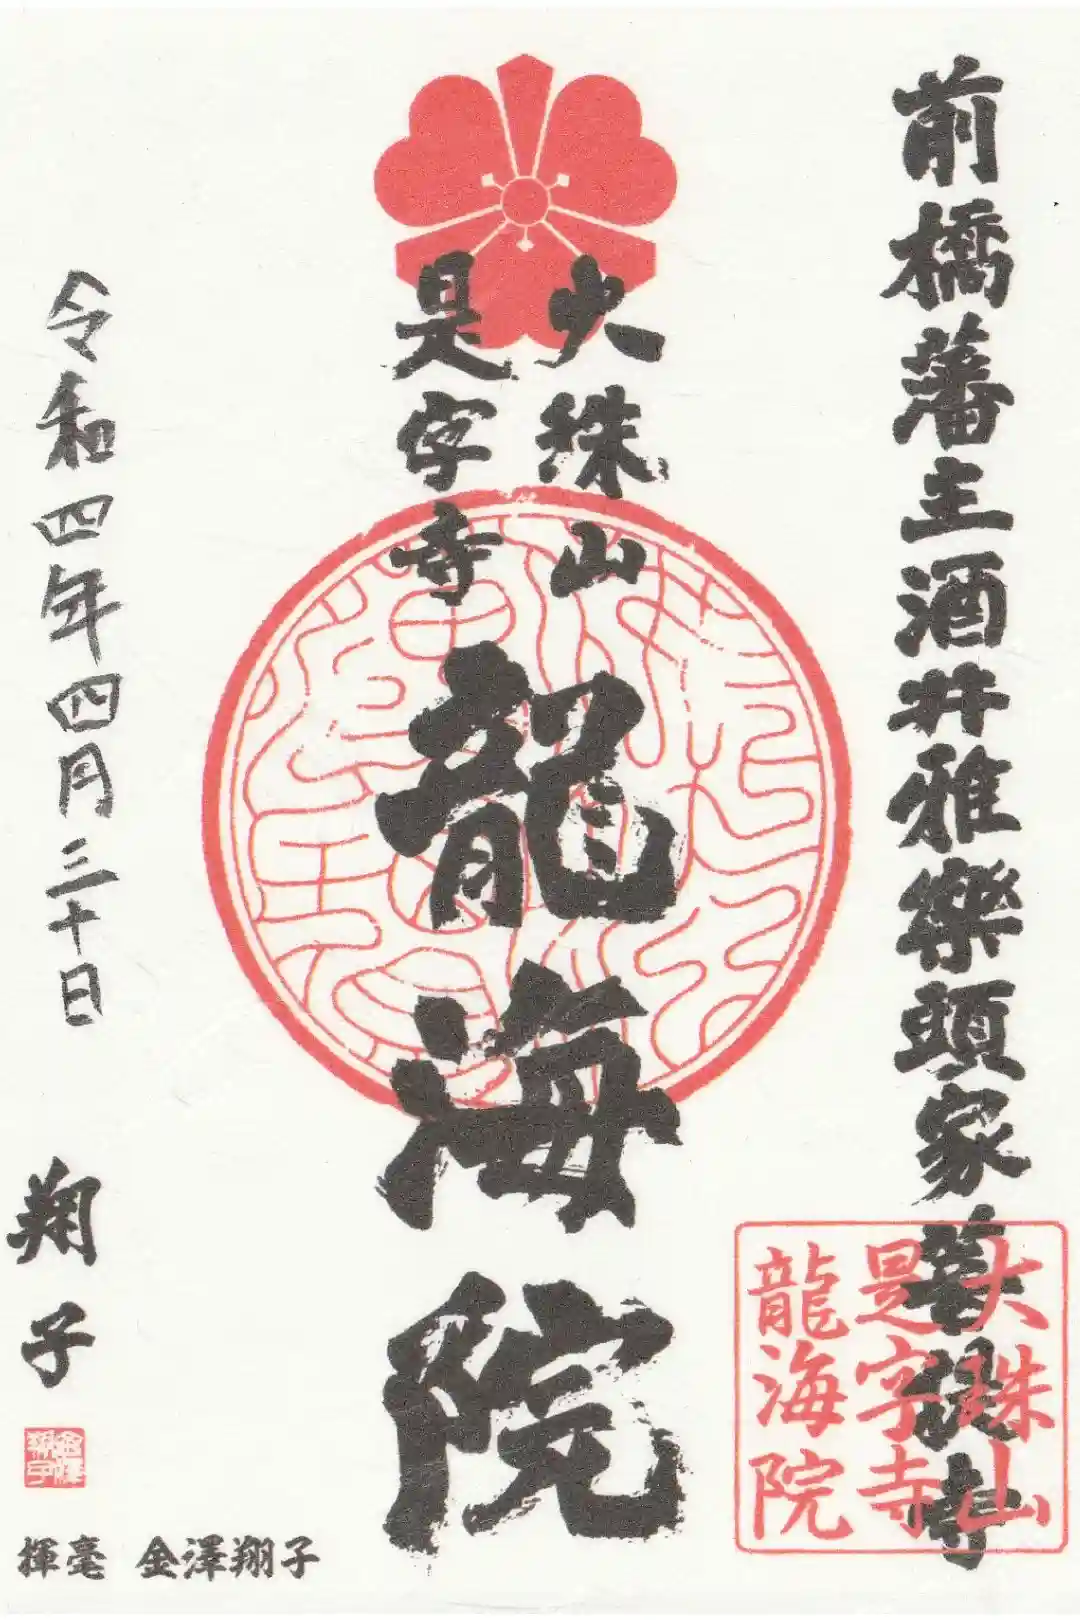 前橋藩主酒井雅樂頭家菩提寺
大珠山
是字寺
龍海院
令和四年四月三十日
翔子
大珠山
是字寺
龍海院
揮毫 金澤翔子